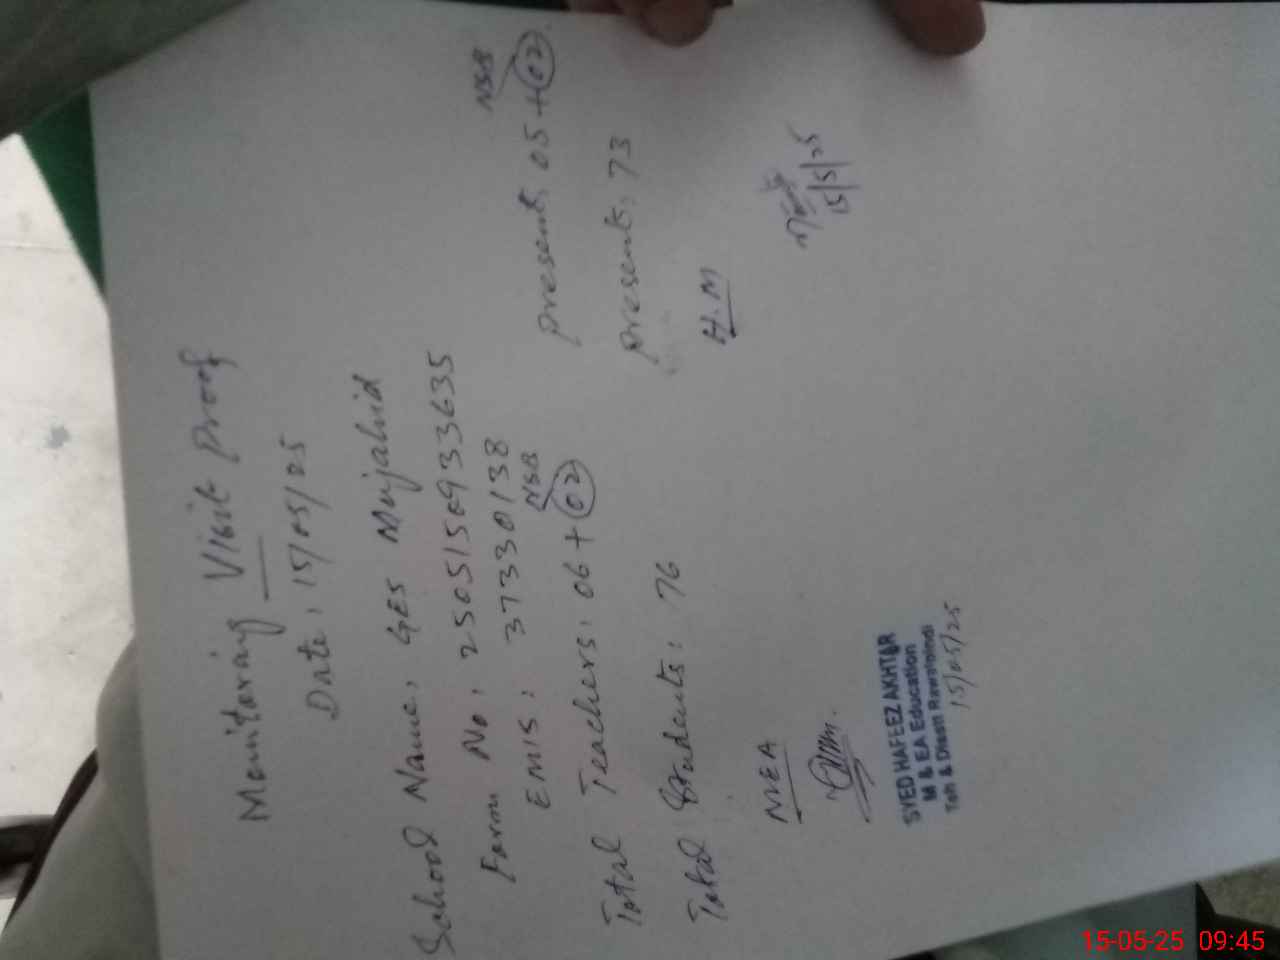 Monitoring Visit Proof
Date: 15/05/25
School Name: GES Mujahid
Form No: 2505150933635
EMIS: 37330138
NSB NSB
Total Teachers: 06 + 02 present: 05 + 02
Total Students: 76 present: 73
MEA H.M
15/5/25
SYED HAFEEZ AKHTAR
M & EA Education
Teh & Distt Rawalpindi
15/05/25
15-05-25 09:45